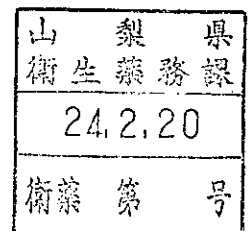 山梨県
衛生薬務課
24.2.20
衛薬第 号